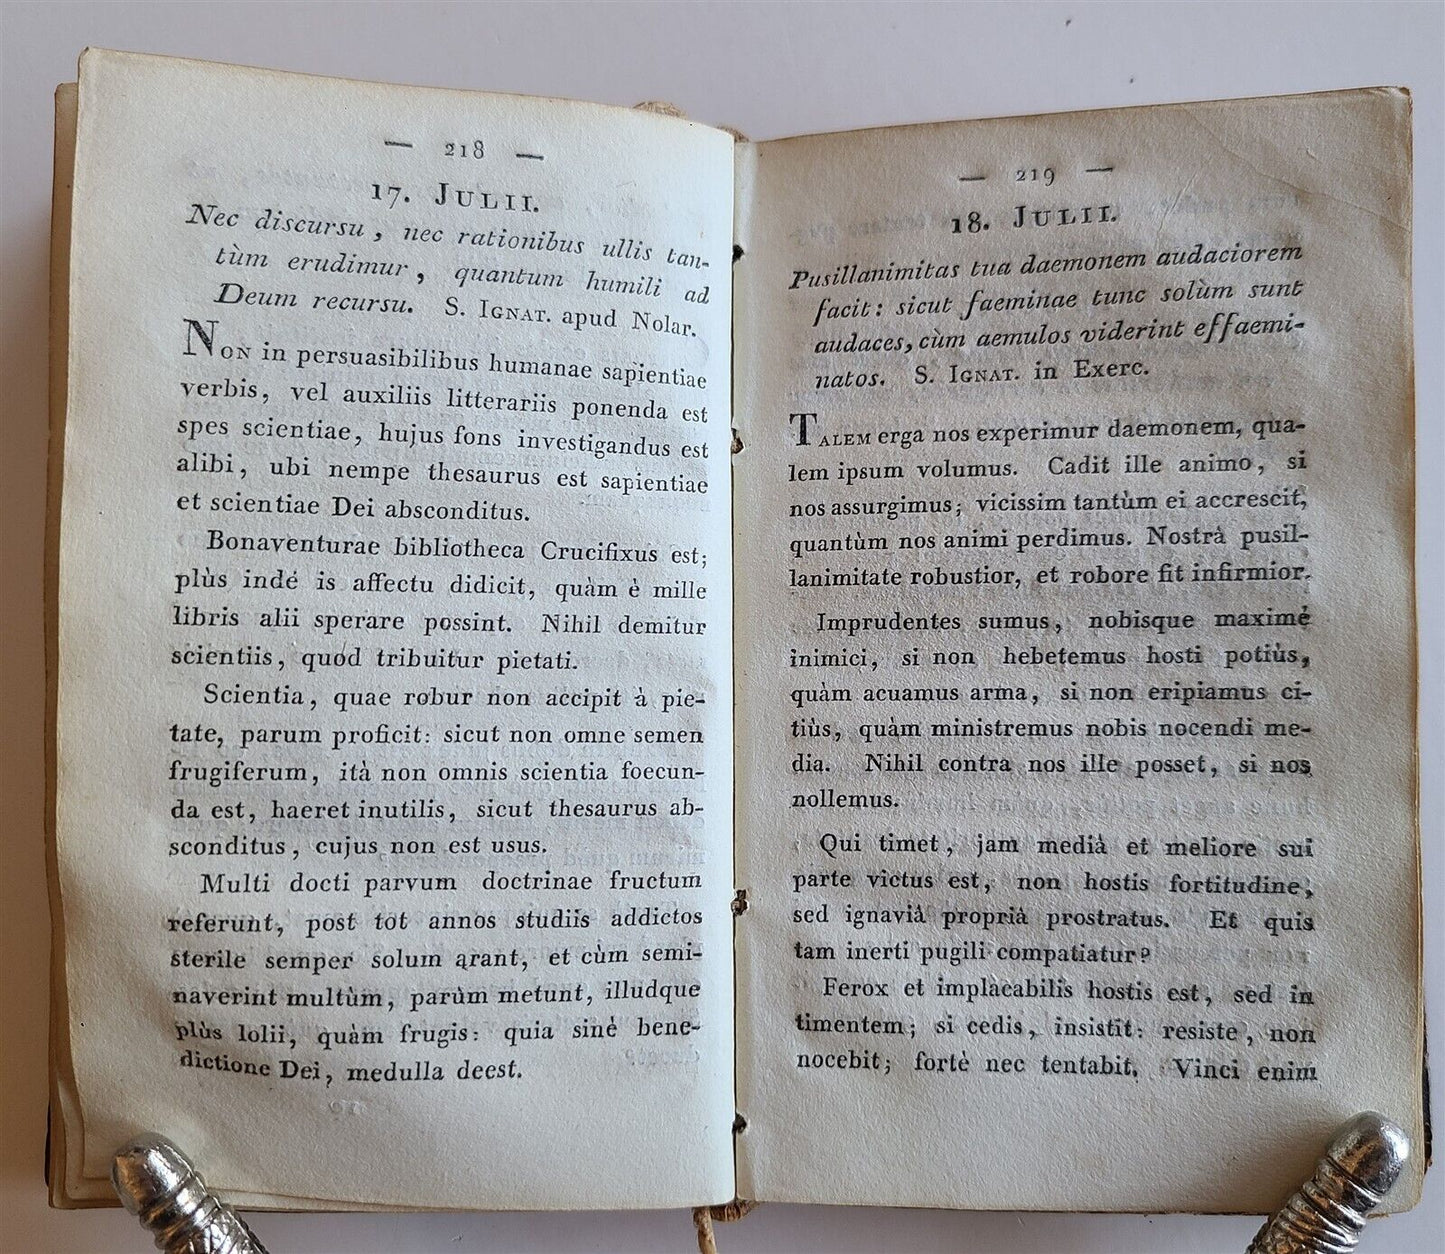 — 218 —
17. JULII.
Nec discursu, nec rationibus ullis tan-
tùm erudimur, quantum humili ad
Deum recursu. S. IGNAT. apud Nolar.
NON in persuasibilibus humanae sapientiae
verbis, vel auxiliis litterariis ponenda est
spes scientiae, hujus fons investigandus est
alibi, ubi nempe thesaurus est sapientiae
et scientiae Dei absconditus.
Bonaventurae bibliotheca Crucifixus est;
plùs indé is affectu didicit, quàm è mille
libris alii sperare possint. Nihil demitur
scientiis, quod tribuitur pietati.
Scientia, quae robur non accipit à pie-
tate, parum proficit: sicut non omne semen
frugiferum, ità non omnis scientia foecun-
da est, haeret inutilis, sicut thesaurus ab-
sconditus, cujus non est usus.
Multi docti parvum doctrinae fructum
referunt, post tot annos studiis addictos
sterile semper solum arant, et cùm semi-
naverint multùm, parùm metunt, illudque
plùs lolii, quàm frugis: quia sinè bene-
dictione Dei, medulla deest.
— 219 —
18. JULII.
Pusillanimitas tua daemonem audaciorem
facit: sicut faeminae tunc solùm sunt
audaces, cùm aemulos viderint effaemi-
natos. S. IGNAT. in Exerc.
TALEM erga nos experimur daemonem, qua-
lem ipsum volumus. Cadit ille animo, si
nos assurgimus; vicissim tantùm ei accrescit,
quantùm nos animi perdimus. Nostrà pusil-
lanimitate robustior, et robore fit infirmior.
Imprudentes sumus, nobisque maximé
inimici, si non hebetemus hosti potiùs,
quàm acuamus arma, si non eripiamus ci-
tiùs, quàm ministremus nobis nocendi me-
dia. Nihil contra nos ille posset, si nos
nollemus.
Qui timet, jam medià et meliore sui
parte victus est, non hostis fortitudine,
sed ignavià proprià prostratus. Et quis
tam inerti pugili compatiatur?
Ferox et implacabilis hostis est, sed in
timentem; si cedis, insistit: resiste, non
nocebit; fortè nec tentabit. Vinci enim